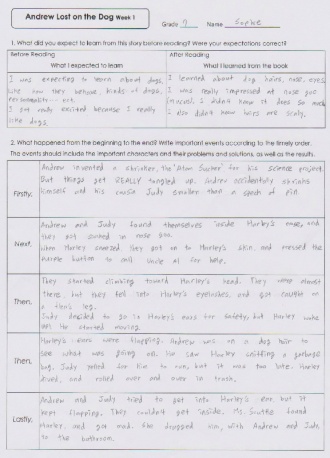 Andrew Lost on the Dog Week 1
Grade 7 Name Sophie
1. What did you expect to learn from this story before reading? Were your expectations correct?
Before Reading After Reading
What I expected to learn What I learned from the book
I was expecting to learn about dogs, I learned about dog hairs, nose, eyes
like how they behave, kinds of dogs, I was really impressed at nose goo
personality... I didn't know it does so much
I got really excited because I really I also didn't know hairs are scaly.
like dogs.
2. What happened from the beginning to the end? Write important events according to the timely order.
The events should include the important characters and their problems and solutions, as well as the results.
Firstly,
Andrew invented a shrinker, the "Atom Sucker" for his science project.
But things get REALLY tangled up. Andrew accidentally shrinks
himself and his cousin Judy smaller than a speck of
Next,
Andrew and Judy found themselves inside Harley's nose, and
they got in nose goo.
When Harley sneezed they got on to Harley's skin, and pressed the
purple button to call uncle Al for help.
Then,
They started climbing toward Harley's head. They were almost
there, but they fell into Harley's eyelashes, and got caught on
a flea's leg.
Judy decided to go in Harley's ears for safety, but Harley woke
up. He started moving.
Then,
Harley's ears were flapping. Andrew was on a dog hair to
see what was going on. He saw Harley sniffing a garbage
bag. Judy yelled for him to run, but it was too late. Harley
dived, and rolled over and over in trash.
Lastly,
Andrew and Judy tried to get into Harley's ear, but it
kept flapping. They couldn't get inside. Ms. Scuttle found
Harley, and got mad. She dragged him, with Andrew and Judy
to the bathroom.